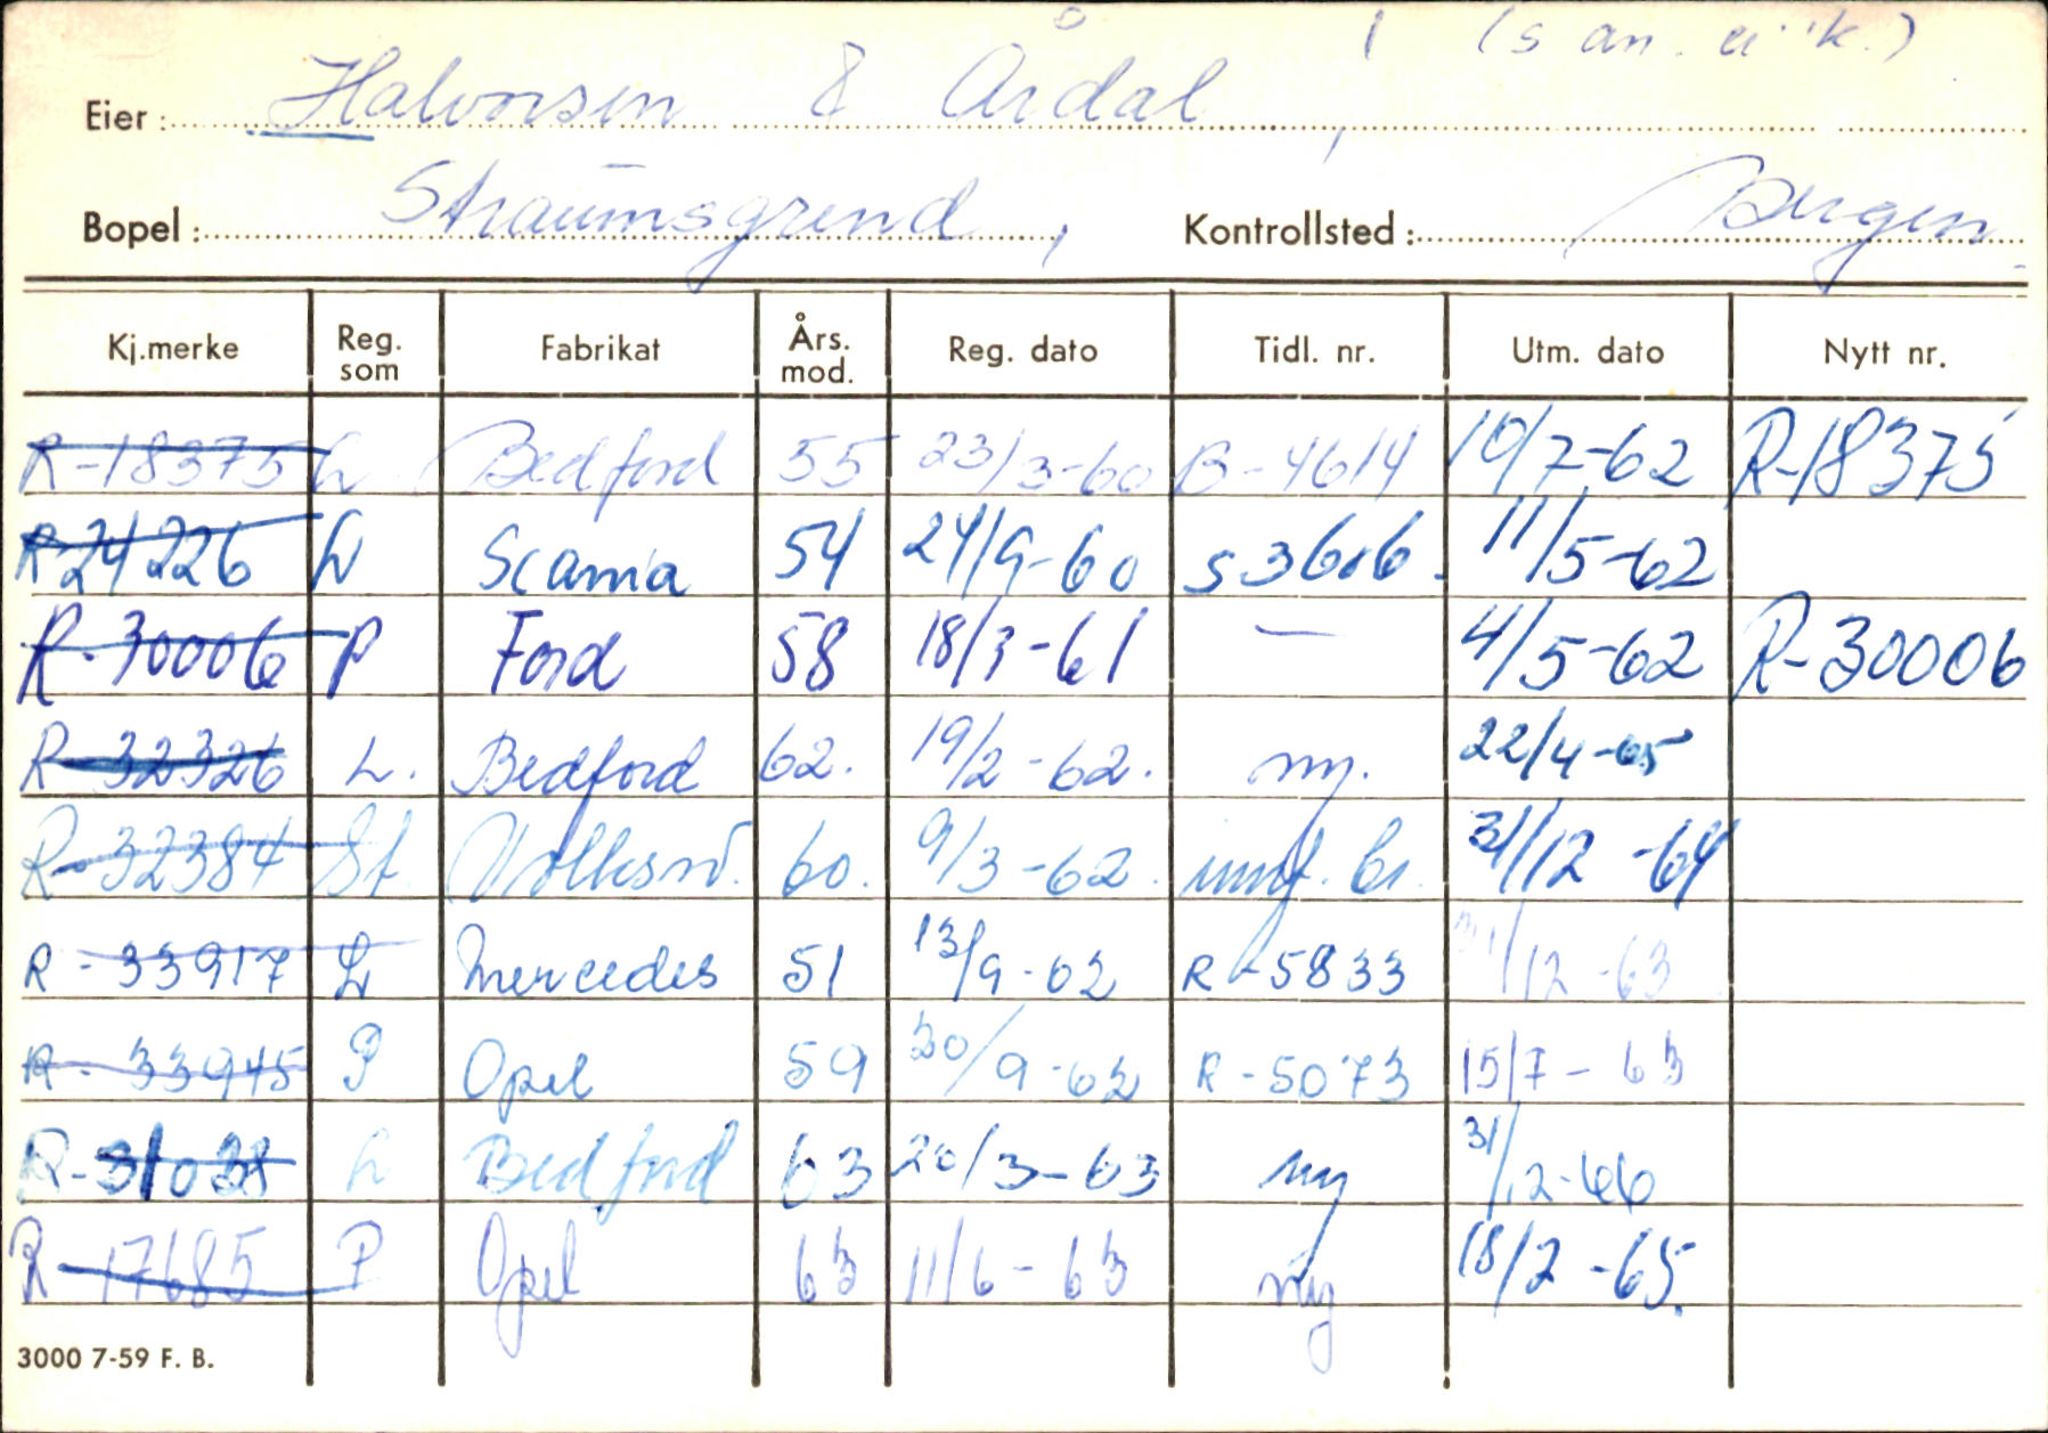 (s an. ei "k.)
Eier: Halvorsen & Årdal,
Bopel: Straumsgrend, Kontrollsted: Bergen
Kj.merke Reg. som Fabrikat Års. mod. Reg. dato Tidl. nr. Utm. dato Nytt nr.
R-18375 L Bedford 55 23/3-60 B-4614 10/7-62 R-18375
R-24226 L Scania 54 24/9-60 S 3616. 11/5-62
R-30006 P Ford 58 18/3-61 — 4/5-62 R-30006
R-32326 L. Bedford 62. 19/2-62. ny. 22/4-65
R-32384 St. Volksw. 60. 9/3-62. innf. br. 31/12-64
R-33917 L Mercedes 51 13/9-62 R-5833 31/12-63
R-33945 P Opel 59 20/9-62 R-5073 15/7-63
R-31038 L Bedford 63 20/3-63 ny 31/12-66
R-17685 P Opel 63 11/6-63 ny 18/2-65.
3000 7-59 F. B.